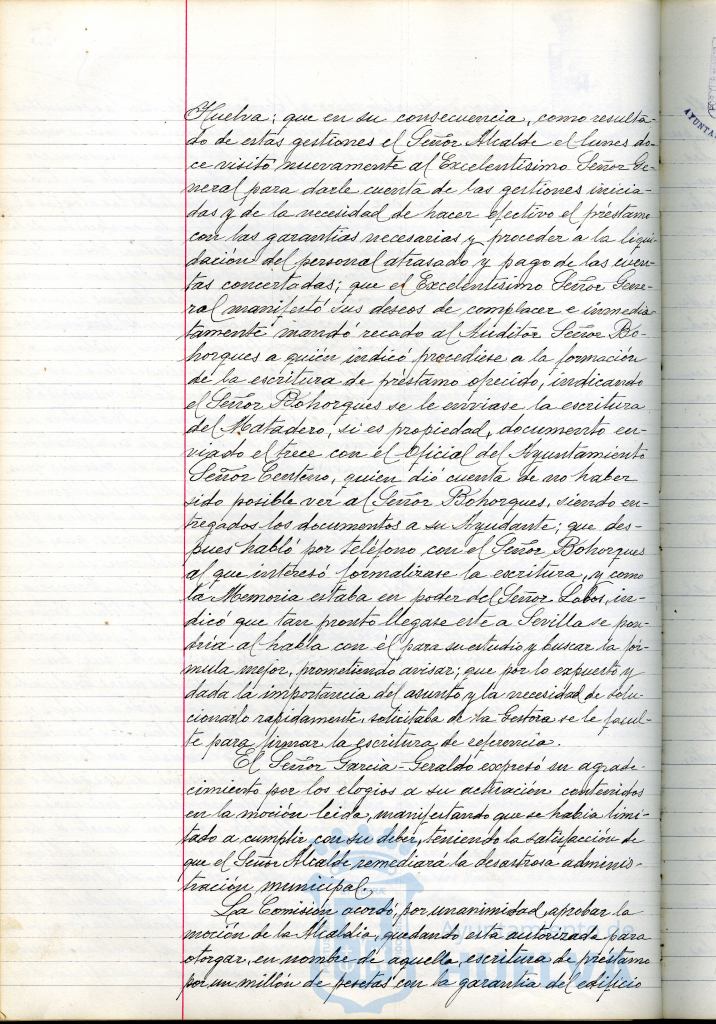 Huelva; que en su consecuencia, como resulta-
do de estas gestiones el Señor Alcalde el lunes do-
ce visitó nuevamente al Excelentísimo Señor Ge-
neral para darle cuenta de las gestiones inicia-
das y de la necesidad de hacer efectivo el préstamo
con las garantías necesarias y proceder a la liqui-
dación del personal atrasado y pago de las cuen-
tas concertadas; que el Excelentísimo Señor Gene-
ral manifestó sus deseos de complacer e inmedia-
tamente mandó recado al Auditor Señor Bo-
horques a quién indicó procediese a la formación
de la escritura de préstamo ofrecido, indicando
el Señor Bohorques se le enviase la escritura
del Matadero, si es propiedad, documento en-
viado el trece con el Oficial del Ayuntamiento
Señor Centeno, quien dió cuenta de no haber
sido posible ver al Señor Bohorques, siendo en-
tregados los documentos a su Ayudante; que des-
pues habló por teléfono con el Señor Bohorques
al que interesó formalizase la escritura, y como
la Memoria estaba en poder del Señor Lobos, in-
dicó que tan pronto llegase este a Sevilla se pon-
dría al habla con él para su estudio y buscar la fór-
mula mejor, prometiendo avisar; que por lo expuesto y
dada la importancia del asunto y la necesidad de solu-
cionarlo rapidamente, solicitaba de la Gestora se le facul-
te para firmar la escritura de referencia.
El Señor García-Geraldó expresó su agrade-
cimiento por los elogios a su actuación contenidos
en la moción leida, manifestando que se había limi-
tado a cumplir con su deber, teniendo la satisfacción de
que el Señor Alcalde remediará la desastrosa adminis-
tración municipal.
La Comisión acordó, por unanimidad, aprobar la
moción de la Alcaldía, quedando esta autorizada para
otorgar, en nombre de aquella, escritura de préstamo
por un millón de pesetas con la garantía del edificio
Ayuntamiento de
HUELVA
AYUNTA